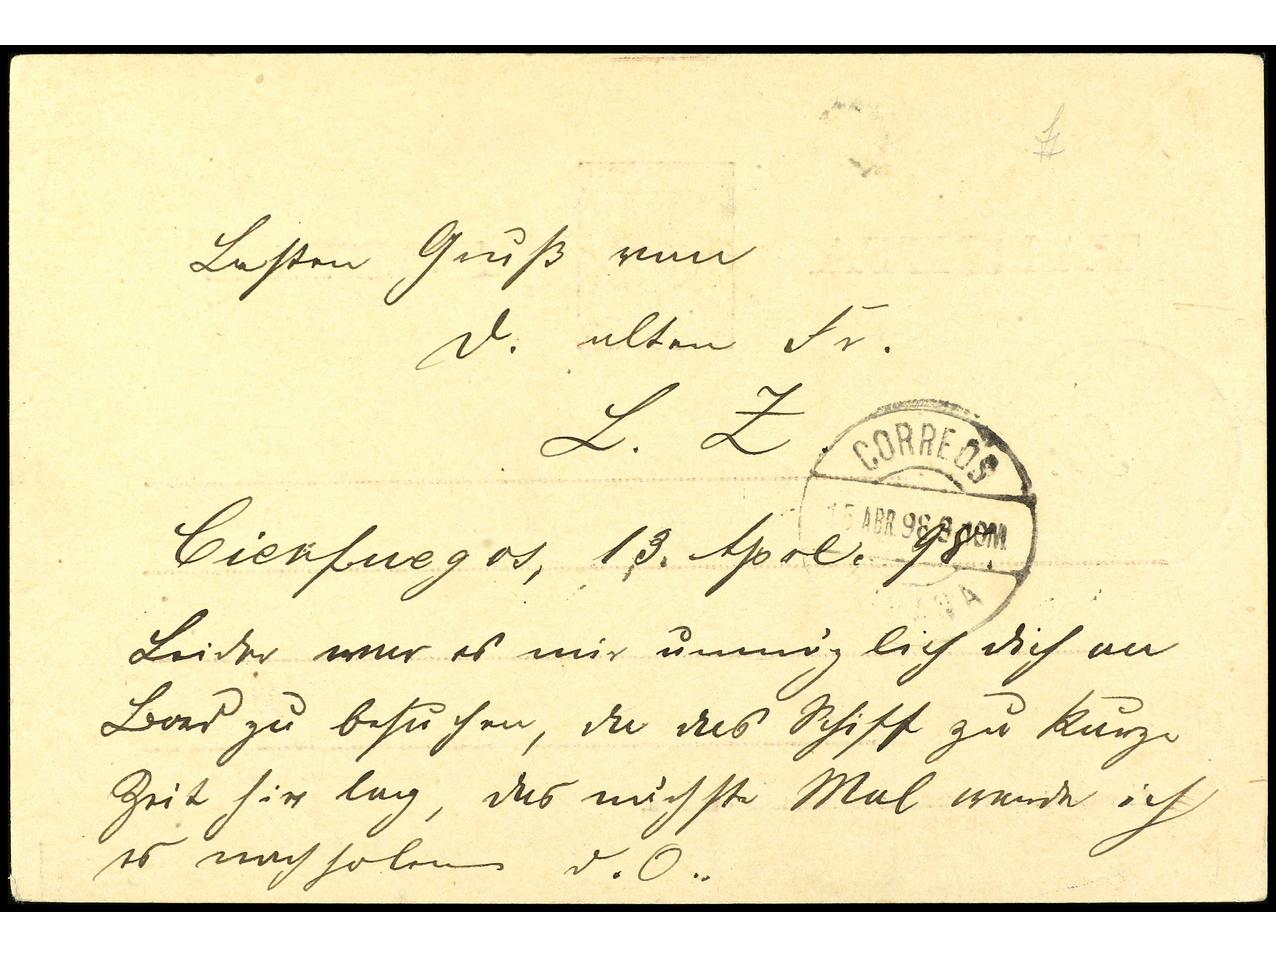 Besten Gruß von
d. alten Fr.
L. Z.
CORREOS
15 ABR 98
Cienfuegos, 13. April. 98.
Leider war es mir unmöglich dich an
Bord zu besuchen, da das Schiff zu kurze
Zeit hier lag, das nächste Mal werde ich
es nachholen d. O..